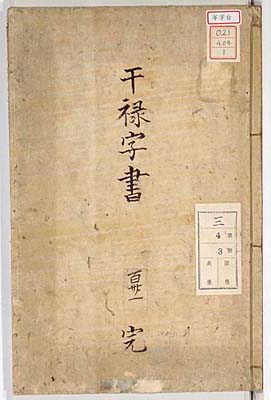 干禄字書
百卌一
完
021
404
1
三
4
3